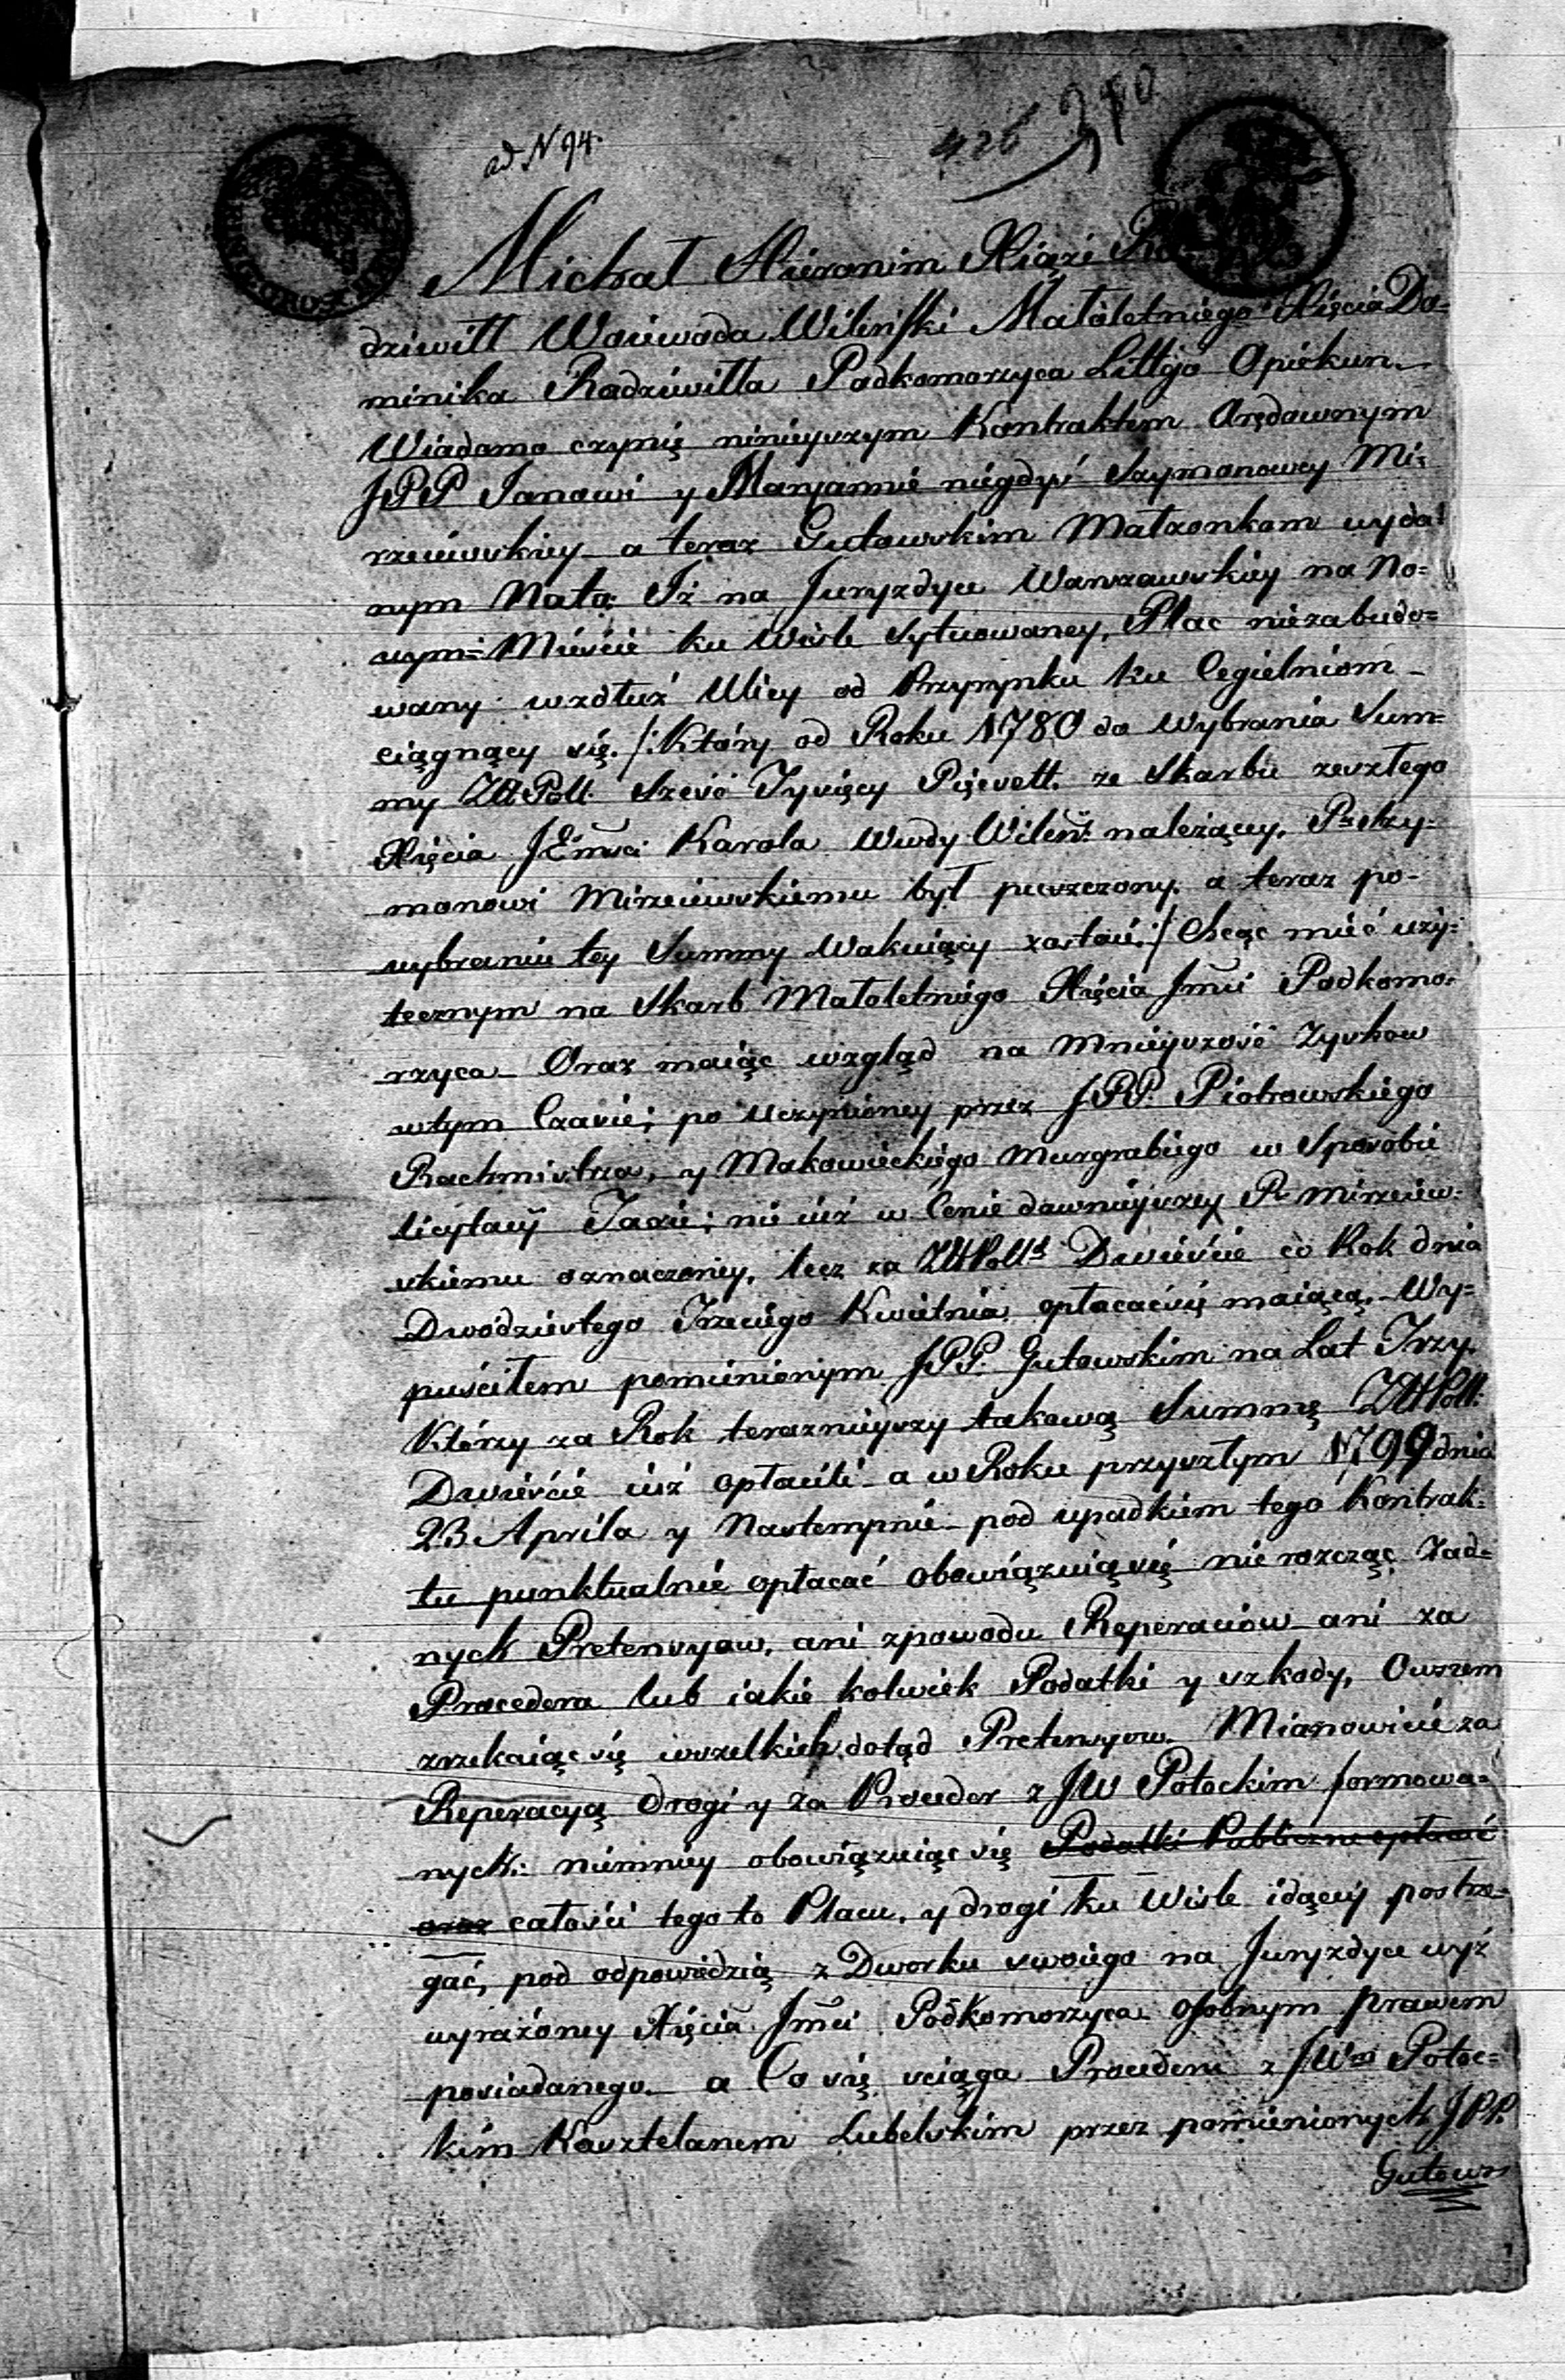 ad N 94.
426 380
Michał Hieronim Xiąże Ra
dziwiłł Woiewoda Wileński Małoletniego Xięcia Do=
minika Radziwiłła Podkomorzyca Littgo Opiekun
Wiadomo czynię ninieyszym Kontraktem Arędownym
JPP Janowi y Maryannie niegdyś Szymonowey Mi=
rzeiewskiey a teraz Gutowskim Małżonkom wyda=
nym Na to: Iż na Juryzdyce Warszawskiey na No=
wym=Mieście ku Wiśle Sytuowaney, Plac niezabudo=
wany wzdłuż Ulicy od Przyrynku ku Cegielniom
ciągnący się. /: Który od Roku 1780 do Wybrania Sum=
my Złł Poll. Sześć Tysięcy Pięćsett. ze Skarbu zeszłego
Xięcia JEmsci Karola Wwdy Wileń: należącey. P. Szy=
monowi Mirzeiewskiemu był puszczony. a teraz po
wybraniu tey Summy Wakuiący został. :/ Chcąc mieć uży=
tecznym na Skarb Małoletniego Xięcia Jmci Podkomo=
rzyca Oraz maiąc wzgląd na Mnieyszość Zyskow
w tym Czasie; po uczynioney przez JPP. Piotrowskiego
Rachmistrza, y Makowieckiego Murgrabiego w Sposobie
licytacyi Taxie; nie iuż w Cenie dawnieyszey P. Mirzeiew=
skiemu oznaczoney, lecz za Złł Poll Dwieście co Rok dnia
Dwódziestego Trzeciego Kwietnia opłacać się maiącą. Wy=
puściłem pomienionym JPP. Gutowskim na Lat Trzy.
Którzy za Rok teraznieyszy takową Summę Złł Poll.
Dwieście iuż opłacili a w Roku przyszłym 1799 dnia
23 Aprila y Nastempnie pod upadkiem tego Kontrak=
tu punktualnie opłacać obowiązuią się nie roszcząc Zad=
nych Pretensyow, ani z powodu Reperaciow ani za
Procedera lub iakie kolwiek Podatki y szkody, Owszem
zrzekaiąc się wszelkich dotąd Pretensyow. Mianowicie za
Reperacyą drogi y za Proceder z JW Potockim formowa=
nych: niemniey obowiązuiąc się Podatki Publiczne opłacać
oraz całości tego to Placu, y drogi ku Wiśle idącey postrze=
gać, pod odpowiedzią z Dworku swoiego na Juryzdyce wyż
wyrażoney Xięcia Jmci Podkomorzyca osobnym prawem
posiadanego. a Co się sciąga Procederu z JWm Potoc=
kim Kasztelanem Lubelskim przez pomienionych JPP.
Gutows